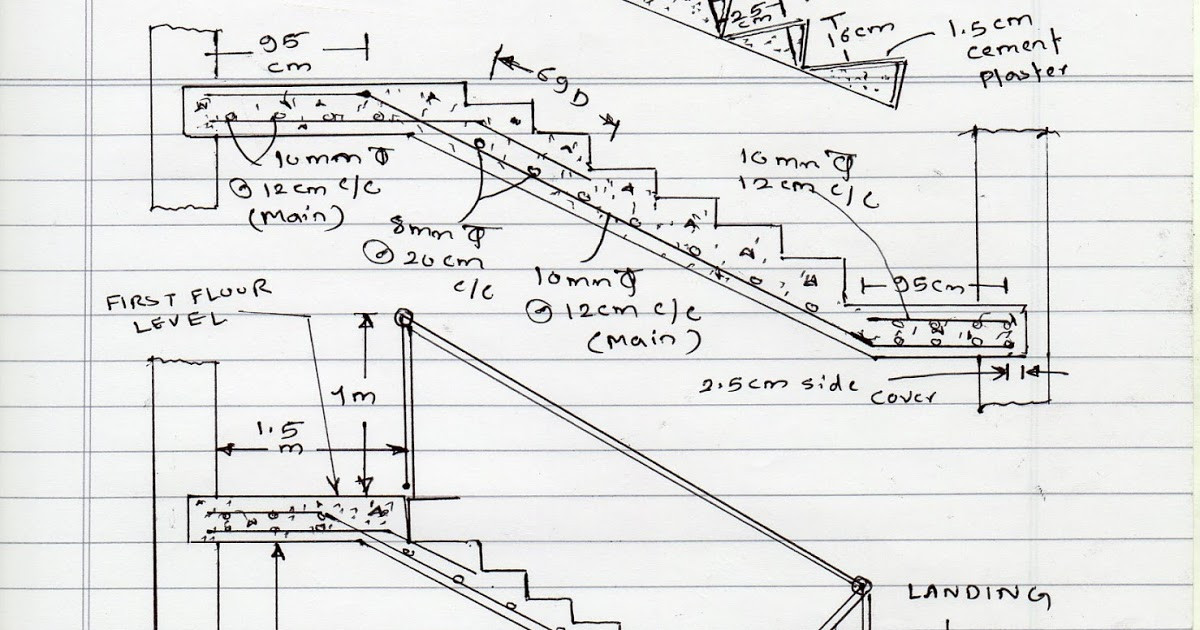 25
cm
16cm
1.5cm
cement
plaster
95
cm
69D
10mm Φ
@ 12cm c/c
(main)
8mm Φ
@ 20cm
c/c
10mm Φ
@ 12cm c/c
(main)
10mm Φ
12cm c/c
95cm
2.5cm side
cover
FIRST FLOUR
LEVEL
1m
1.5
m
LANDING